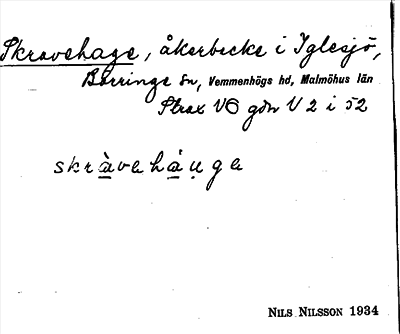 Skravehage, åkerbacke i Yglesjö,
Börringe sn, Vemmenhögs hd, Malmöhus län
Strax VO gdn V 2 i 52
skràvehåu̥ga
NILS NILSSON 1934